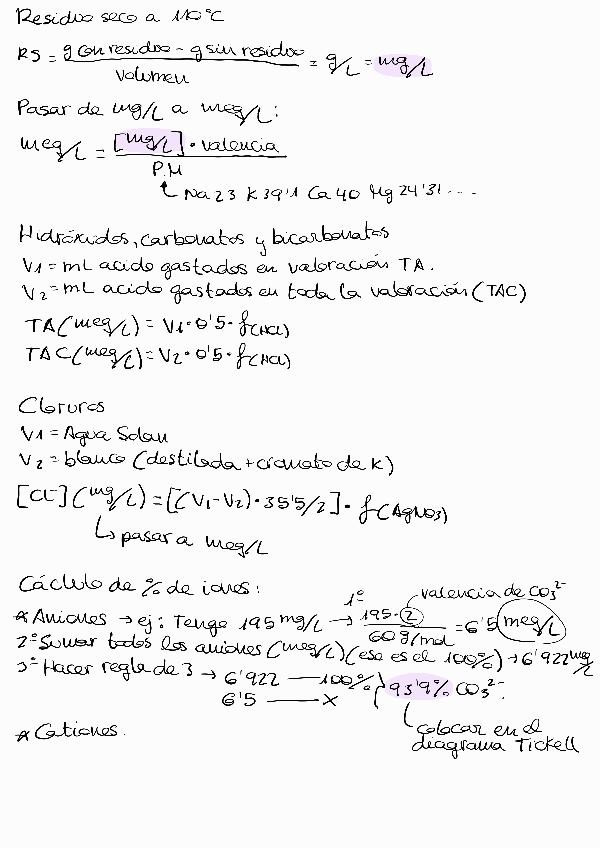 Residuo seco a 110°C
RS = g con residuo - g sin residuo / Volumen = g/L = mg/L
Pasar de mg/L a meq/L:
meq/L = [mg/L] · valencia / P.M
Na 23 K 39'1 Ca 40 Mg 24'31 ...
Hidróxidos, carbonatos y bicarbonatos
V1 = mL acido gastados en valoración TA.
V2 = mL acido gastados en toda la valoración (TAC)
TA (meq/L) = V1 · 0'5 · f(HCl)
TAC (meq/L) = V2 · 0'5 · f(HCl)
Cloruros
V1 = Agua Solan
V2 = blanco (destilada + cromato de K)
[Cl-] (mg/L) = [(V1 - V2) · 35'5/2] · f(AgNO3)
↳ pasar a meq/L
Cáclulo de % de iones:
valencia de CO3 2-
* Aniones → ej: Tengo 195 mg/L → 1º 195 · 2 / 60 g/mol = 6'5 meq/L
2º Sumar todos los aniones (meq/L) (ese es el 100%) → 6'922 mg/L
3º Hacer regla de 3 → 6'922 — 100% } 93'9% CO3 2-.
6'5 — X
colocar en el
diagrama Tickell
* Cationes.